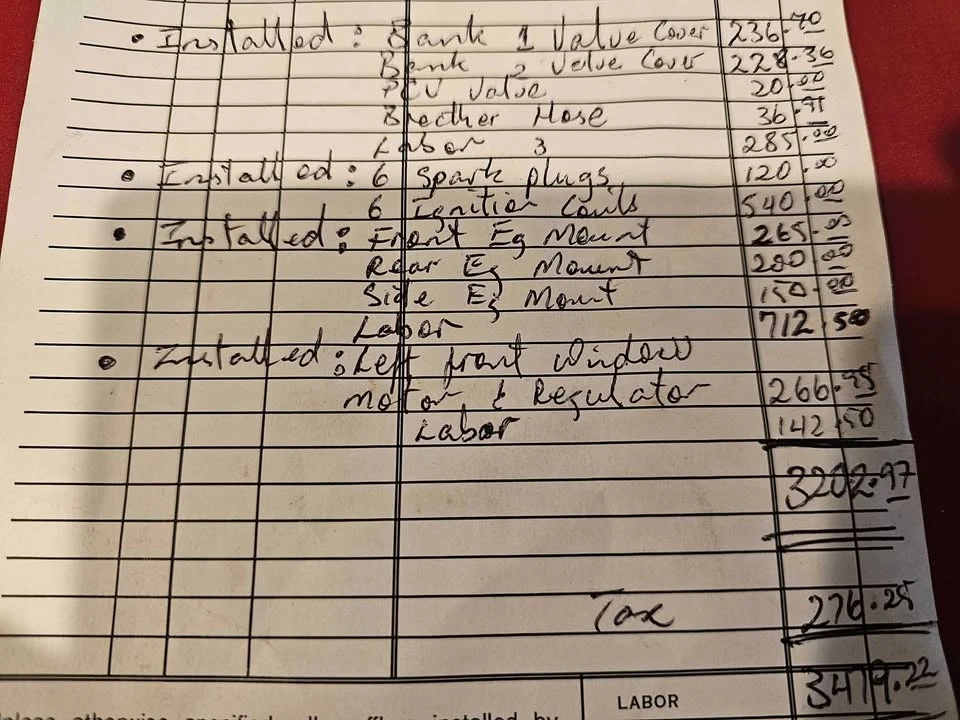 • Installed: Bank 1 Valve Cover 236.70
Bank 2 Valve Cover 228.36
PCV Valve 20.00
Breother Hose 36.95
Labor 3 285.00
• Installed: 6 Spark plugs 120.00
6 Ignition Couils 540.00
• Installed: Front Eg Mount 265.00
Rear Eg Mount 200.00
Side Eg Mount 150.00
Labor 712.50
• Installed: Left front Window
Motor & Regulator 266.95
Labor 142.50
3202.97
Tax 276.25
LABOR 3479.22
otherwise specified installed by